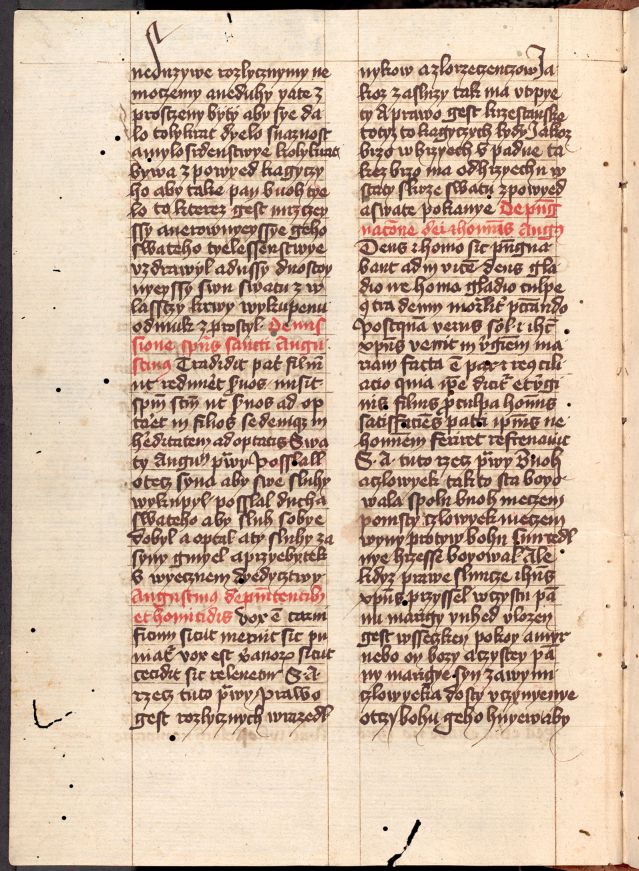 neduzywe rozlycznymy ne
mozemy aneduhy yate z
proszeny byty aby sye da
lo tolykrat dyelo snaznost
amylosrdenstwye kolykrat
bywa z powyed kagyczy
ho aby take pan buoh tye
lo to kterez gest mrzczey
ssy anerownyeyssye geho
swateho tyelessenstwye
uzdrawyl adussy duostoy
nyeyssy swu swatu z w
lasstzy krwy wykupenu
odmuk z prostyl. De mis
sione spūs sancti Augu
stinus Tradidit pat filiū
ut redimēt suos misit
spm stm ut suos ad op
tēt in filios se deniqz in
heditatem adoptatis Swa
ty Augun prwy Possłall
otecz syna aby swe sluhy
wykupyl possłal ducha
swateho aby sluh sobye
dobyl a opētal aty sluhy za
syny gmyel aprzebytek
s wyecznem dyedycztwy
Augustinus de penitencibz
et homicidis vox ē carni
ficum sicut meruit sic pu
niat vox est xpianorum sicut
cecidit sic relevetur S. A.
rzecz tuto prwy Prawo
gest rozlycznych wrazedl
nykow azlorzeczenczow Ja
koz zaslizy tak ma utpye
ty A prawo gest krzestansko
totyz to kagyczych lydy Jakoz
brzo whrzyech upadne ta
kez brzo ma odhrzechu w
staty skrze swatu zpowyed
aswate pokanye De pug
natone dei et hominis Augu
Deus et homo sic pugna
bant ad in vitē deus gla
dio ne homo gladio culpe
qtra deum morlit ptādo
Postqua verus sol et iħc
xpūs venit in vgiem ma
riam facta ē pax et recōcili
acio quia ipe dicit et vgi
nis filius pro culpa homis
satisfatiēs patri ipmis ne
hominem feriret refrenavit
S. A. tuto rzecz prwy Buoh
aczlowyek takto sta boyo
wala spolu buoh meczem
pomsty czlowyek mieczem
wyny protyw bohu smrtedl
nye hrzesse boyowal Ale
kdyz prawe slunce ihus
xpūs przyssel wczysti pa
nu marigy yhned vlozen
gest wsseczken pokoy amyr
nebo on bozy aczystey pa
ny marigye syn zawynu
czlowyeka dosty uczynyenye
otczy bohu geho hnyew aby